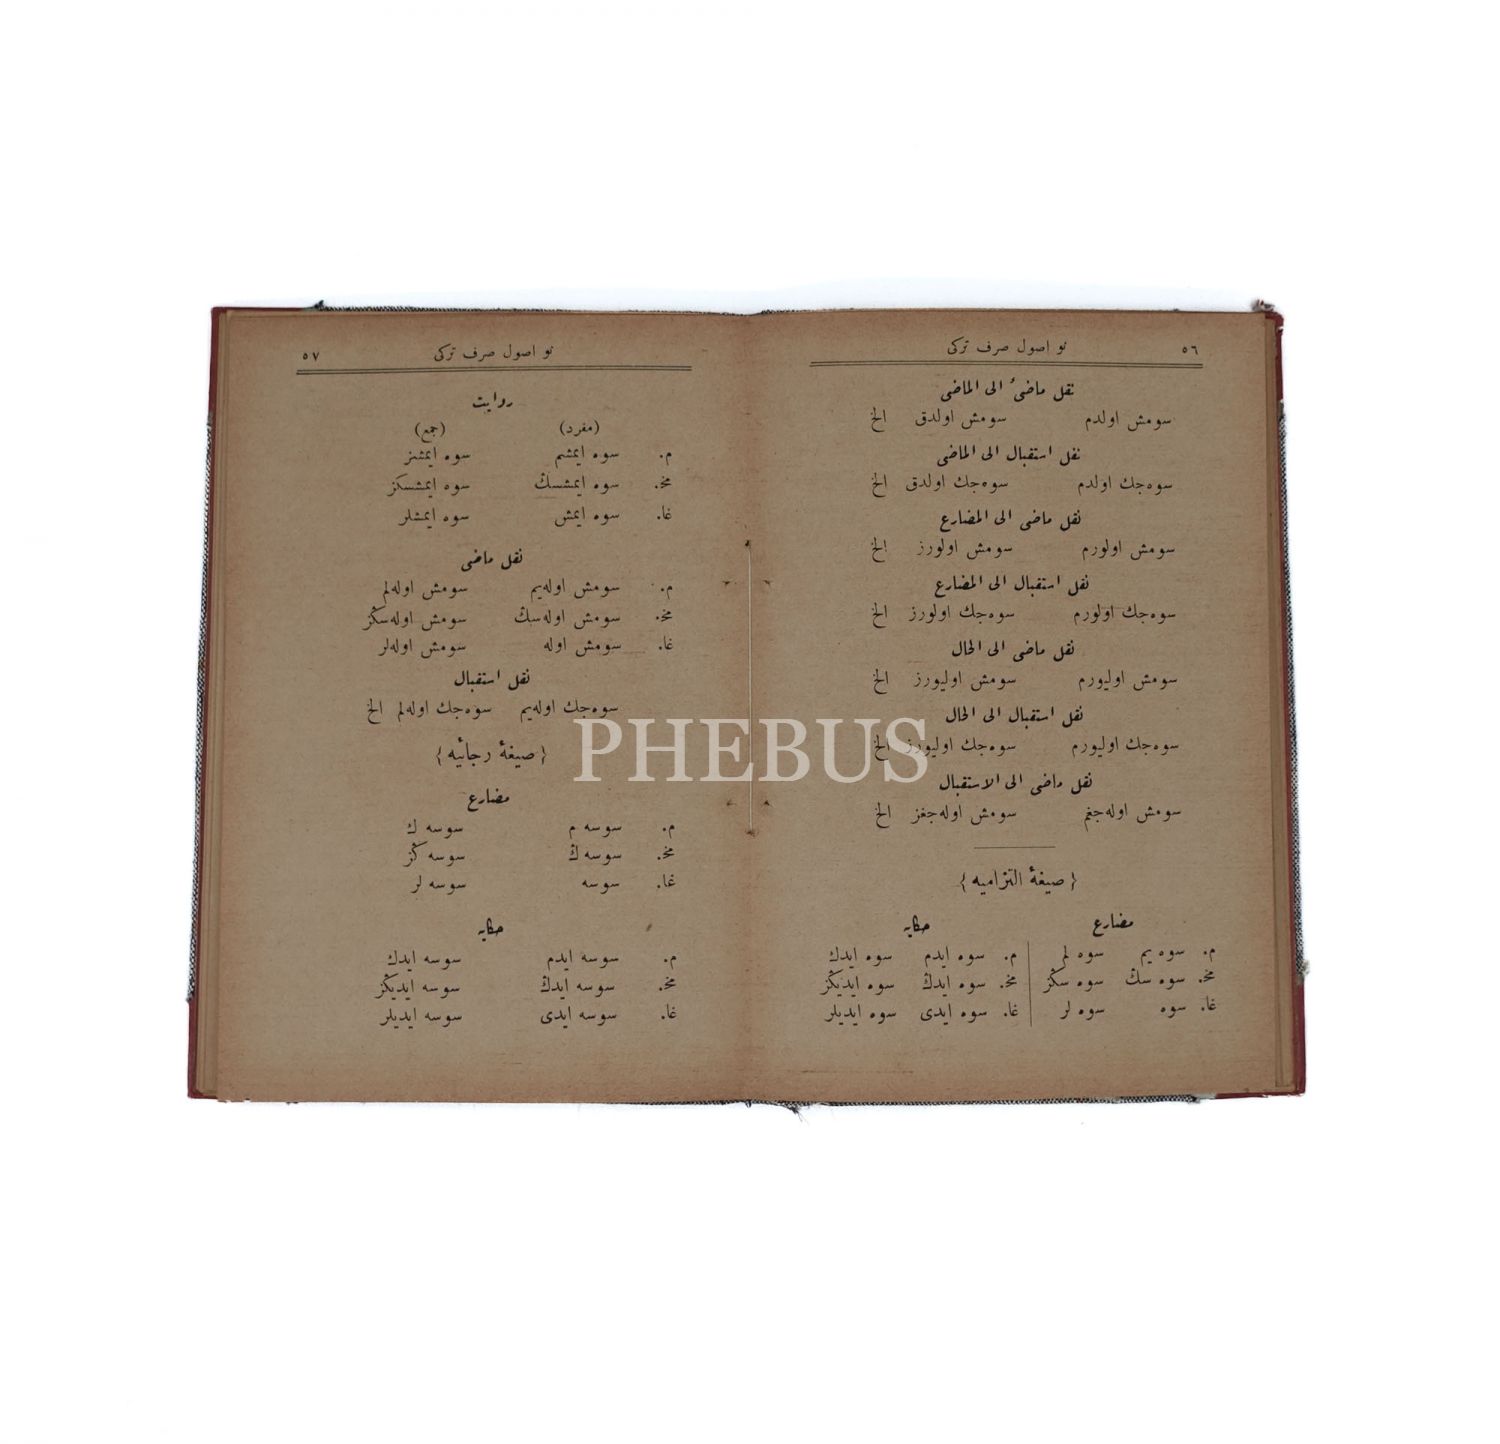 ٥٦ نو اصول صرف تركی
نقل ماضیٔ الی الماضی
سومش اولدم سومش اولدق الخ
نقل استقبال الی الماضی
سوه‌جك اولدم سوه‌جك اولدق الخ
نقل ماضی الی المضارع
سومش اولورم سومش اولورز الخ
نقل استقبال الی المضارع
سوه‌جك اولورم سوه‌جك اولورز الخ
نقل ماضی الی الحال
سومش اولیورم سومش اولیورز الخ
نقل استقبال الی الحال
سوه‌جك اولیورم سوه‌جك اولیورز الخ
نقل ماضی الی الاستقبال
سومش اوله‌جغم سومش اوله‌جغز الخ
{صیغهٔ التزامیه}
مضارع حكایه
م. سوه یم سوه لم م. سوه ایدم سوه ایدك
مخ. سوه سڭ سوه سڭز مخ. سوه ایدڭ سوه ایدیڭز
غا. سوه سوه لر غا. سوه ایدی سوه ایدیلر
نو اصول صرف تركی ٥٧
روایت
(مفرد) (جمع)
م. سوه ایمشم سوه ایمشز
مخ. سوه ایمشسڭ سوه ایمشسكز
غا. سوه ایمش سوه ایمشلر
نقل ماضی
م. سومش اوله‌یم سومش اوله‌لم
مخ. سومش اوله‌سڭ سومش اوله‌سڭز
غا. سومش اوله سومش اوله‌لر
نقل استقبال
سوه‌جك اوله‌یم سوه‌جك اوله‌لم الخ
{صیغهٔ رجائیه}
مضارع
م. سوسه م سوسه ك
مخ. سوسه ڭ سوسه ڭز
غا. سوسه سوسه لر
حكایه
م. سوسه ایدم سوسه ایدك
مخ. سوسه ایدڭ سوسه ایدیڭز
غا. سوسه ایدی سوسه ایدیلر
PHEBUS